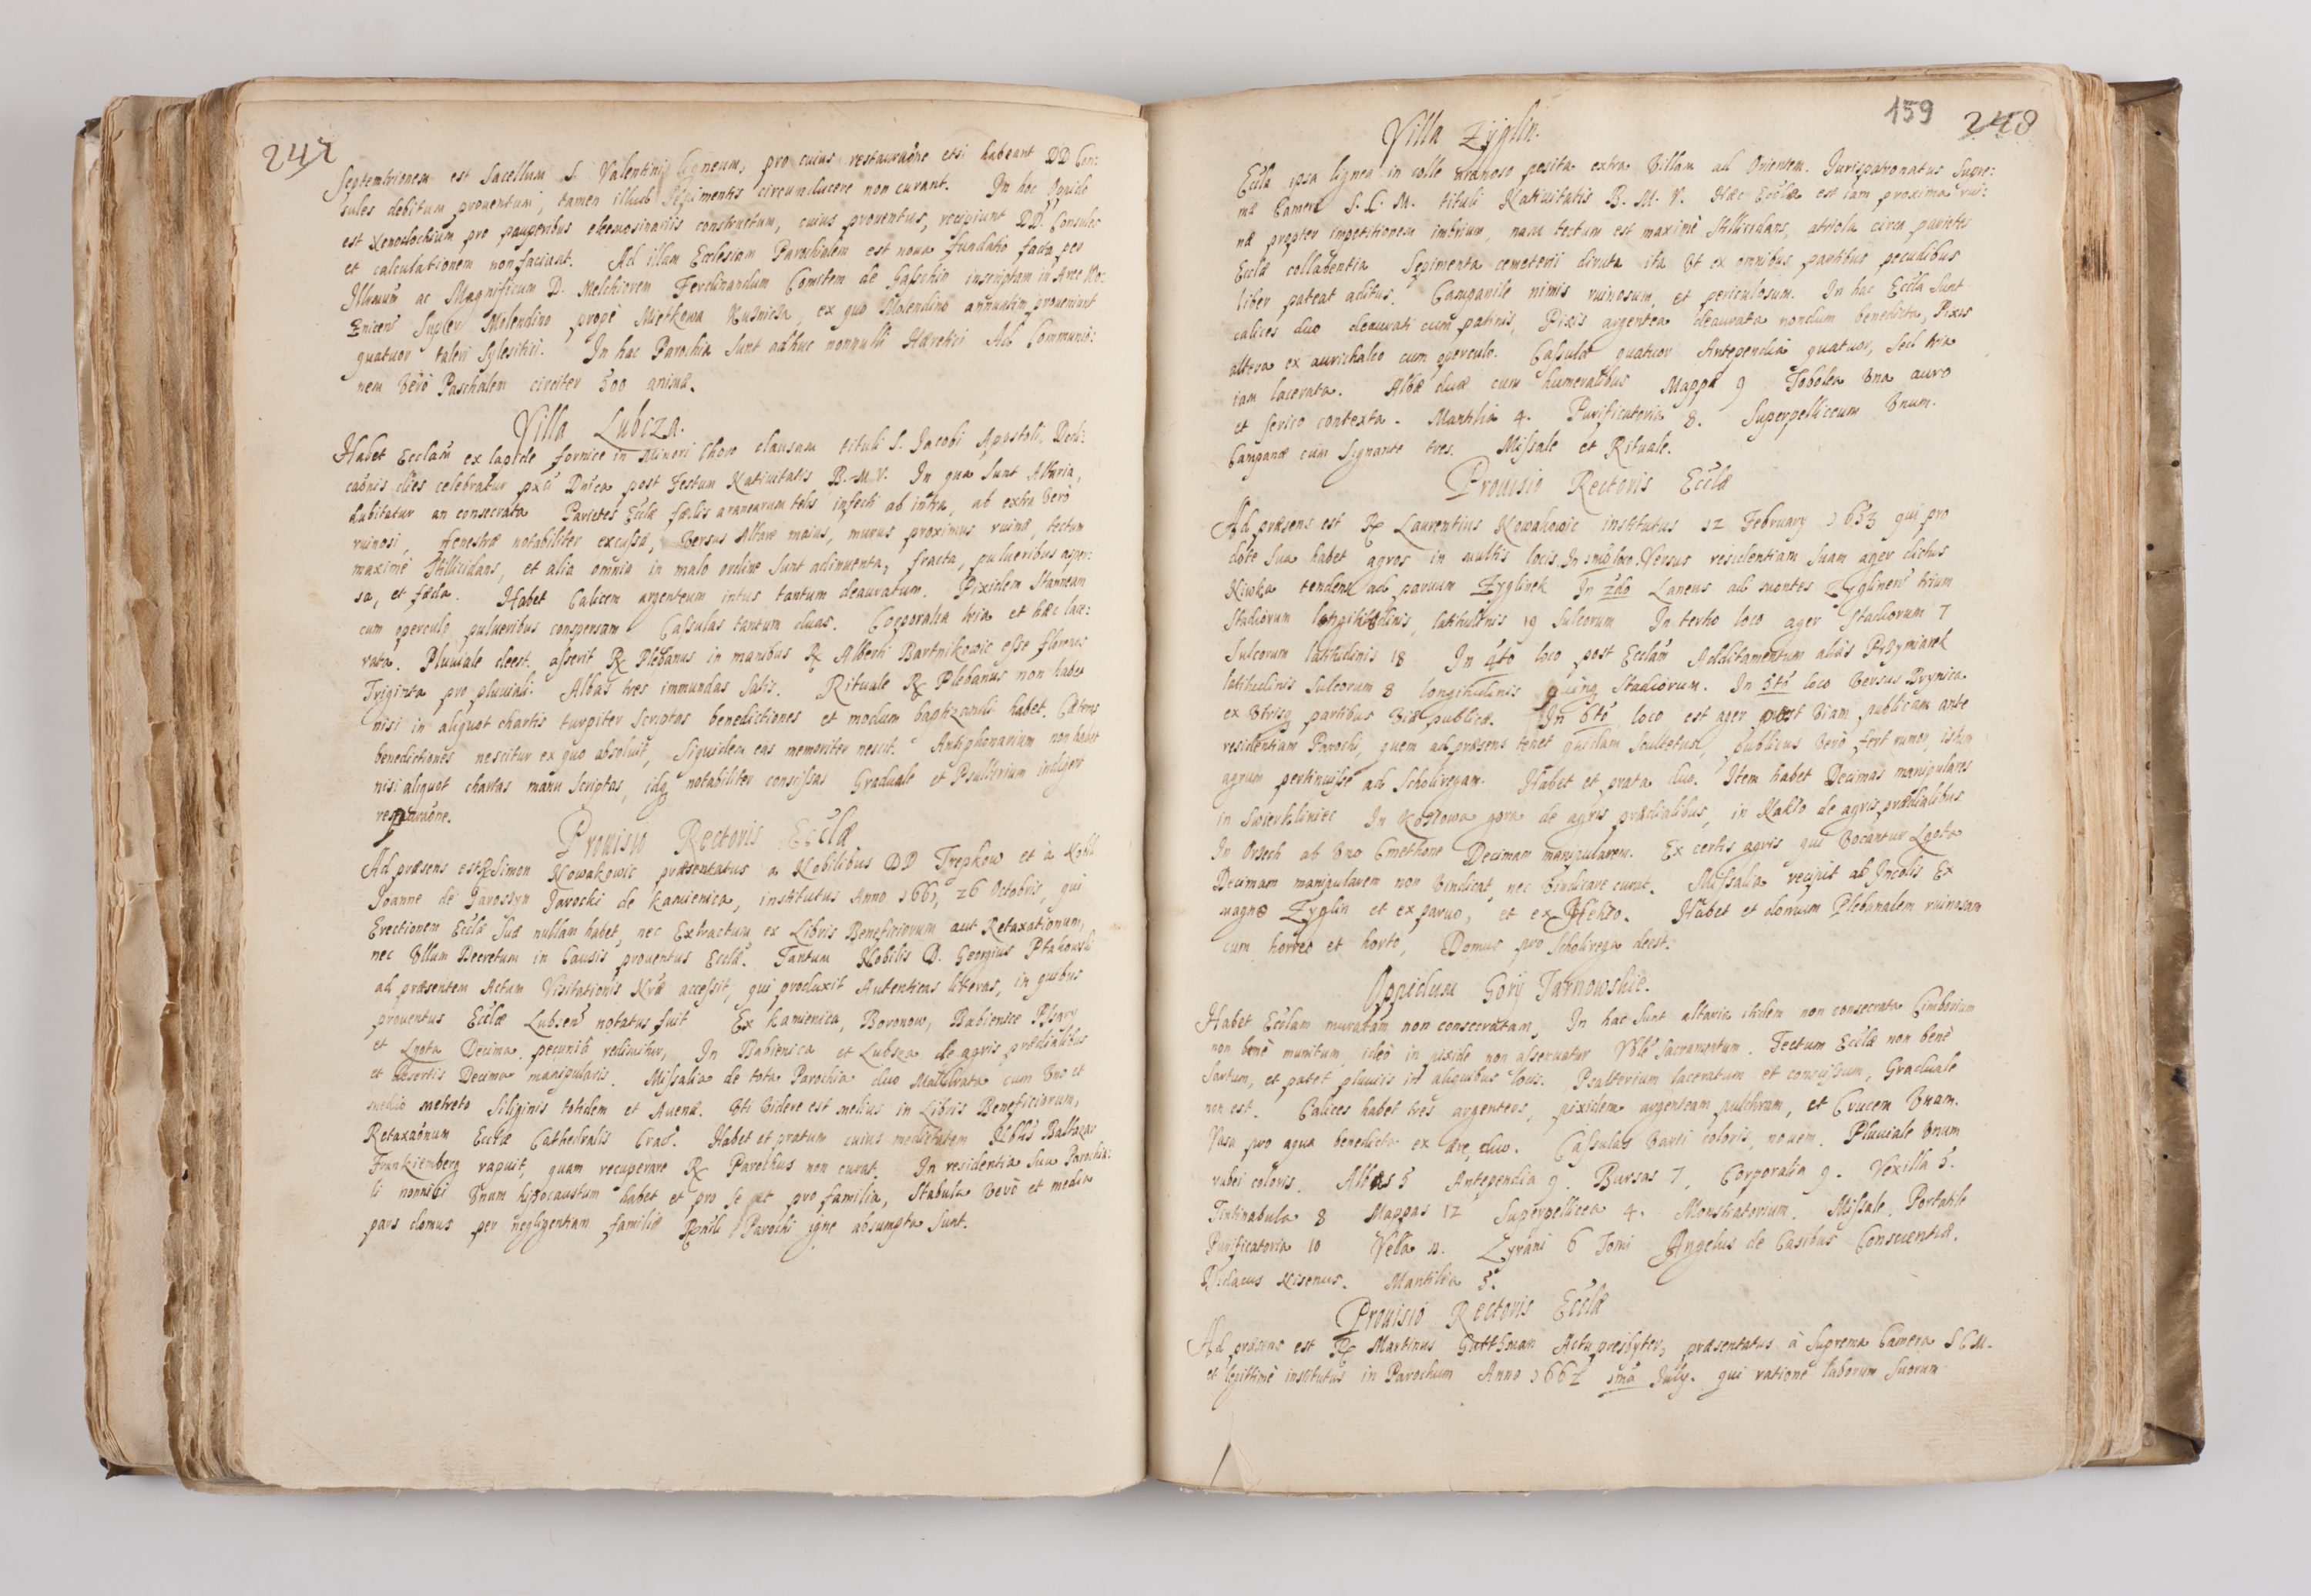 247
Septemtrionem est Sacellum S. Valentini ligneum, pro cuius restauraõne etsi habeant DD Con:
sules debitum prouentum, tamen illud sepimentis circumducere non curant. In hoc Oppido
est Xenodochium pro pauperibus eleemosinariis constructum, cuius prouentus, recipiunt DD. Consules
et calculationem non faciant. Ad illam Ecclesiam Parochialem est noua fundatio facta per
Illmum ac Magnificum D. Melchiorem Ferdinandum Comitem de Gaschin inscriptam in Arce
super Molendino propè Miętkowa Kuźnicza, ex quo Molendino annuatim proueniunt
quatuor taleri Sylesitici. In hac Parochia sunt adhuc nonnulli Hæretici Ad Communio:
nem verò Paschalem circiter 500 animæ.
Villa Lubcza.
Habet Ecclam ex lapide fornice in Minori Choro clausam tituli S. Jacobi Apostoli. Dedi:
caõnis dies celebratur pxã Dnica post Festum Natiuitatis B. M. V. In qua sunt Altaria,
dubitatur an consecrata Parietes Ecclæ fædis aranearum telis infecti ab intra, ab extra verò
ruinosi, fenestræ notabiliter excussæ, versus Altare maius, murus proximus ruinæ, tectum
maximè stillicidans, et alia omnia in malo ordine sunt adinuenta, fracta, pulueribus asper:
sa, et fæda. Habet Calicem argenteum intus tantum deauratum. Pixidem stanneam
cum operculo pulueribus conspersam Casulas tantum duas. Corporalia tria et hæc lace:
rata. Pluuiale deest. asserit R Plebanus in manibus R Alberti Bartnikowic esse florenos
Triginta pro pluuiali. Albas tres immundas satis. Rituale R Plebanus non habet
nisi in aliquot chartis turpiter scriptas benedictiones et modum baptizandi habet. Cæteras
benedictiones nescitur ex quo absoluit, siquidem eas memoriter nescit. Antiphonarium non habet
nisi aliquot chartas manu scriptas, idq notabiliter conscissas Graduale et Psalterium indiget
restauraõne.
Prouisio Rectoris Ecclæ
Ad præsens est R Simon Nowakowic præsentatus a Nobilibus DD Trepkow et à Nobili
Joanne de Jaroszyn Jarocki de Kamienica, institutus Anno 1661, 26 Octobris, qui
Erectionem Ecclæ suæ nullam habet, nec Extractum ex Libris Beneficiorum aut Retaxationum,
nec vllum Decretum in Causis prouentus Ecclæ. Tantum Nobilis D. Georgius Ptakowski
ad præsentem Actum Visitationis Nræ accessit, qui produxit Autenticas literas, in quibus
prouentus Ecclæ Lubsen notatus fuit Ex Kamienica, Boronow, Babienice Psary
et Lgota Decima pecunia redimitur, In Babienica et Lubsza de agris prædialibus
et desertis Decima manipularis. Missalia de tota Parochia duo Maldrata cum vno et
medio metreto siliginis totidem et Auenæ. vti videre est melius in Libris Beneficiorum,
Retaxaõnum Ecclæ Cathedralis Crac. Habet et pratum cuius medietatem Nblis Baltazar
Frankiemberg rapuit, quam recuperare R Parochus non curat. In residentia sua Parochia:
li nonnisi vnum hipocaustum habet et pro se et pro familia, stabula verò et media
pars domus per negligentiam familiæ Parochi igne absumpta sunt.
159 248
Villa Zyglin.
Eccla ipsa lignea in colle arenoso posita extra villam ad Orientem. Jurispatronatus Supre:
mæ Cameræ S. C. M. tituli Natiuitatis B. M. V. Hæc Eccla est iam proxima rui:
næ propter impetitionem imbrium, nam tectum est maximè stillicidans, atriola circa parietes
Ecclæ collabentia Sepimenta cemeterii diruta ita vt ex omnibus partibus pecudibus
liber pateat aditus. Campanile nimis ruinosum, et periculosum. In hac Eccla sunt
calices duo deaurati cum patinis, Pixis argentea deaurata nondum benedicta, Pixis
altera ex aurichalco cum operculo. Casulæ quatuor Antependia quatuor, sed tria
iam lacerata. Albæ duæ cum humeralibus Mappæ 9 Tobolea vna auro
et serico contexta. Mantilia 4. Purificatoria 8. Superpelliceum vnum.
Campanæ cum signante tres. Missale et Rituale.
Prouisio Rectoris Ecclæ
Ad præsens est R Laurentius Nowakowic institutus 12 February 1653 qui pro
dote sua habet agros in multis locis. In 1mo loco. Versus residentiam suam ager dictus
Niwka tendens ad paruum Zyglinek In 2do Laneus ad montes Zyglinen trium
Stadiorum longitudinis, latitudinis 19 sulcorum In tertio loco ager Stadiorum 7
Sulcorum latitudinis 18 In 4to loco post Ecclam Additamentum aliàs Przymiarek
latitudinis sulcorum 8 longitudinis quinq Stadiorum. In 5to loco versus Brynica
ex vtrisq partibus viæ publicæ. In 6to loco est ager post viam publicam ante
residentiam Parochi, quem ad præsens tenet quidam Scultetus, publicus verò fert rumor, istum
agrum pertinuisse ad Scholiregam. Habet et prata duo. Item habet Decimas manipulares
in Swierkliniec In Kozłowa gora de agris prædialibus, in Nakło de agris prædialibus
In Orzech ab vno Cmethone Decimam manipularem. Ex certis agris qui vocantur Lgota
Decimam manipularem non vindicat, nec vindicare curat. Missalia recipit ab Incolis Ex
magno Zyglin et ex paruo, et ex Nehło. Habet et domum Plebanalem ruinosam
cum horreo et horto, Domus pro Scholirega deest.
Oppidum Gory Tarnowskie.
Habet Ecclam muratam non consecratam, In hac sunt altaria itidem non consecrata Cimborium
non benè munitum, ideò in pixide non asseruatur Vble Sacramentum. Tectum Ecclæ non benè
sartum, et patet pluuiis in aliquibus locis. Psalterium laceratum et conscissum, Graduale
non est. Calices habet tres argenteos, pixidem argenteam pulchram, et Crucem vnam.
Vasa pro aqua benedicta ex ære duo. Casulas varii coloris, nouem. Pluuiale vnum
rubei coloris. Albas 5 Antependia 9. Bursas 7. Corporalia 9. Vexilla 5.
Tintinabula 8 Mappas 12 Superpellicea 4. Monstratorium. Missale. Portatile
Purificatoria 10 Vella 11. Zyrani 6 Tomi Angelus de Casibus Conscientiæ.
Didacus Nisenus. Mantilia 5.
Prouisio Rectoris Ecclæ
Ad præsens est R Martinus Gutthman Actu presbyter, præsentatus à Suprema Camera S C M.
et legittimè institutus in Parochum Anno 1662 1ma July. qui ratione laborum suorum